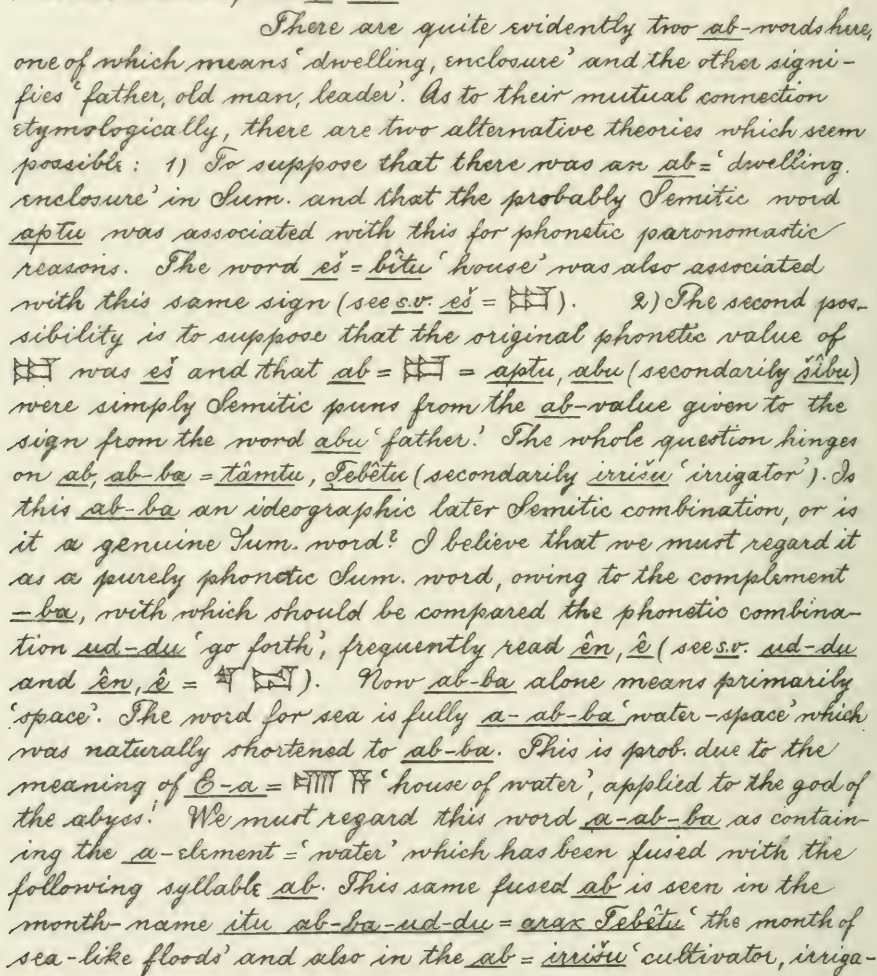 There are quite evidently two ab-words here,
one of which means 'dwelling, enclosure' and the other signi-
fies 'father, old man, leader'. As to their mutual connection
etymologically, there are two alternative theories which seem
possible: 1) To suppose that there was an ab = 'dwelling,
enclosure' in Sum. and that the probably Semitic word
aptu was associated with this for phonetic paronomastic
reasons. The word eš = bîtu 'house' was also associated
with this same sign (see s.v. eš = 𒀊). 2) The second pos-
sibility is to suppose that the original phonetic value of
𒀊 was eš and that ab = 𒀊 = aptu, abu (secondarily šîbu)
were simply Semitic puns from the ab-value given to the
sign from the word abu 'father'. The whole question hinges
on ab, ab-ba = tâmtu, Tebêtu (secondarily irrišu 'irrigator'). Is
this ab-ba an ideographic later Semitic combination, or is
it a genuine Sum. word? I believe that we must regard it
as a purely phonetic Sum. word, owing to the complement
-ba, with which should be compared the phonetic combina-
tion ud-du 'go forth', frequently read ên, ê (see s.v. ud-du
and ên, ê = 𒌓 𒁺). Now ab-ba alone means primarily
'space'. The word for sea is fully a-ab-ba 'water-space' which
was naturally shortened to ab-ba. This is prob. due to the
meaning of E-a = 𒂍 𒀀 'house of water', applied to the god of
the abyss. We must regard this word a-ab-ba as contain-
ing the a-element = 'water' which has been fused with the
following syllable ab. This same fused ab is seen in the
month-name itu ab-ba-ud-du = arax Tebêtu 'the month of
sea-like floods' and also in the ab = irrišu 'cultivator, irriga-